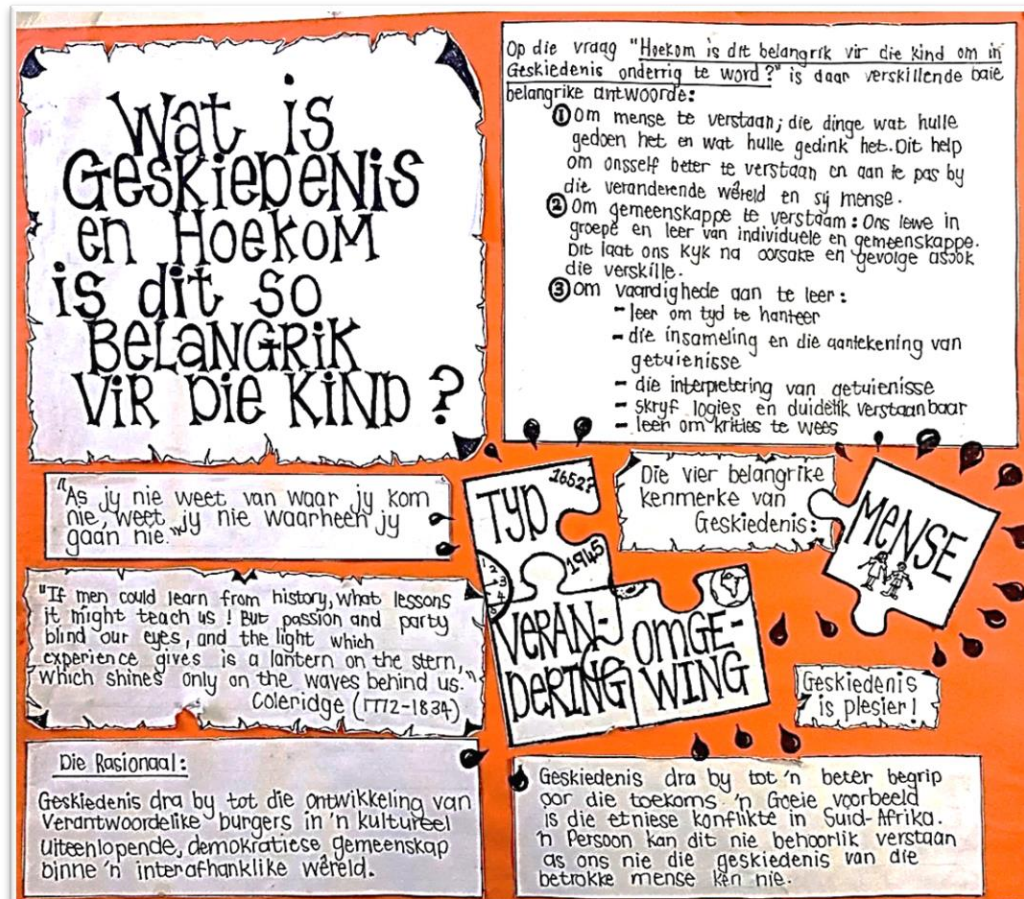 Wat is
Geskiedenis
en Hoekom
is dit so
Belangrik
vir die Kind?
Op die vraag "Hoekom is dit belangrik vir die kind om in
Geskiedenis onderrig te word?" is daar verskillende baie
belangrike antwoorde:
① Om mense te verstaan; die dinge wat hulle
gedoen het en wat hulle gedink het. Dit help
om onsself beter te verstaan en aan te pas by
die veranderende wêreld en sy mense.
② Om gemeenskappe te verstaam: Ons lewe in
groepe en leer van individuele en gemeenskappe.
Dit laat ons kyk na oorsake en gevolge asook
die verskille.
③ Om vaardighede aan te leer:
- leer om tyd te hanteer
- die insameling en die aantekening van
getuienisse
- die interpretering van getuienisse
- skryf logies en duidelik verstaanbaar
- leer om krities te wees
"As jy nie weet van waar jy kom
nie, weet jy nie waarheen jy
gaan nie."
"If men could learn from history, what lessons
it might teach us! But passion and party
blind our eyes, and the light which
experience gives is a lantern on the stern,
which shines only on the waves behind us."
Coleridge (1772-1834)
Die Rasionaal:
Geskiedenis dra by tot die ontwikkeling van
Verantwoordelike burgers in 'n kultureel
uiteenlopende, demokratiese gemeenskap
binne 'n interafhanklike wêreld.
Die vier belangrike
kenmerke van
Geskiedenis:
TYD
1652?
1945
MENSE
VERAN-
DERING
OMGE-
WING
Geskiedenis
is plesier!
Geskiedenis dra by tot 'n beter begrip
oor die toekoms. 'n Goeie voorbeeld
is die etniese konflikte in Suid-Afrika.
'n Persoon kan dit nie behoorlik verstaan
as ons nie die geskiedenis van die
betrokke mense ken nie.